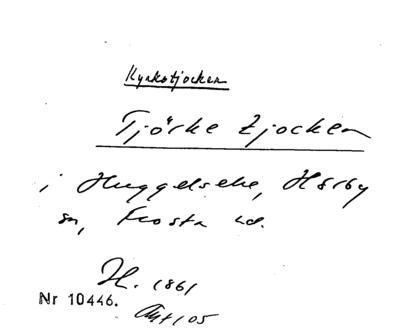 Kyrkotjocken
Tjörke Zjocken
i Huggelseke, Hörby
sn, Frosta hd.
H. 1861
Nr 10446.